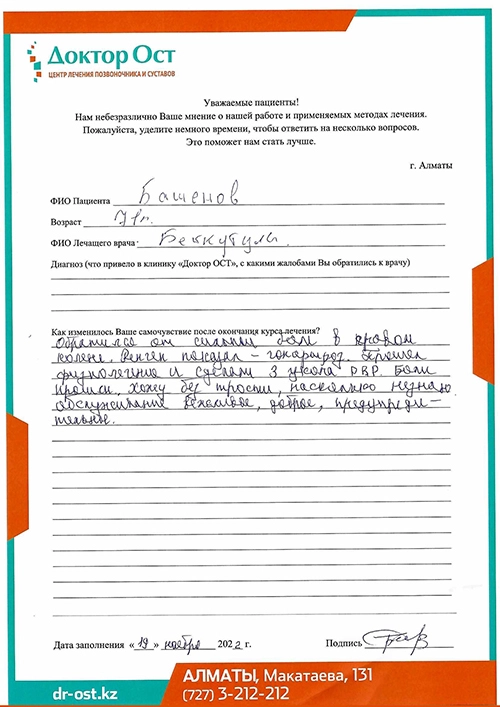 Доктор Ост
ЦЕНТР ЛЕЧЕНИЯ ПОЗВОНОЧНИКА И СУСТАВОВ
Уважаемые пациенты!
Нам небезразлично Ваше мнение о нашей работе и применяемых методах лечения.
Пожалуйста, уделите немного времени, чтобы ответить на несколько вопросов.
Это поможет нам стать лучше.
г. Алматы
ФИО Пациента Башенов
Возраст
ФИО Лечащего врача:
Диагноз (что привело в клинику «Доктор ОСТ», с какими жалобами Вы обратились к врачу)
Как изменилось Ваше самочувствие после окончания курса лечения?
Обратился от сильных боли в правом
колене. Ренген показал - гонартроз. Прошел
физиолечение и сделали 3 укола PRP. Боли
прошли, хожу без трости, насколько незнаю
обслуживание вежливое, доброе, предупреди-
тельное.
Дата заполнения « 19 » ноября 2022 г.
Подпись
dr-ost.kz
АЛМАТЫ, Макатаева, 131
(727) 3-212-212